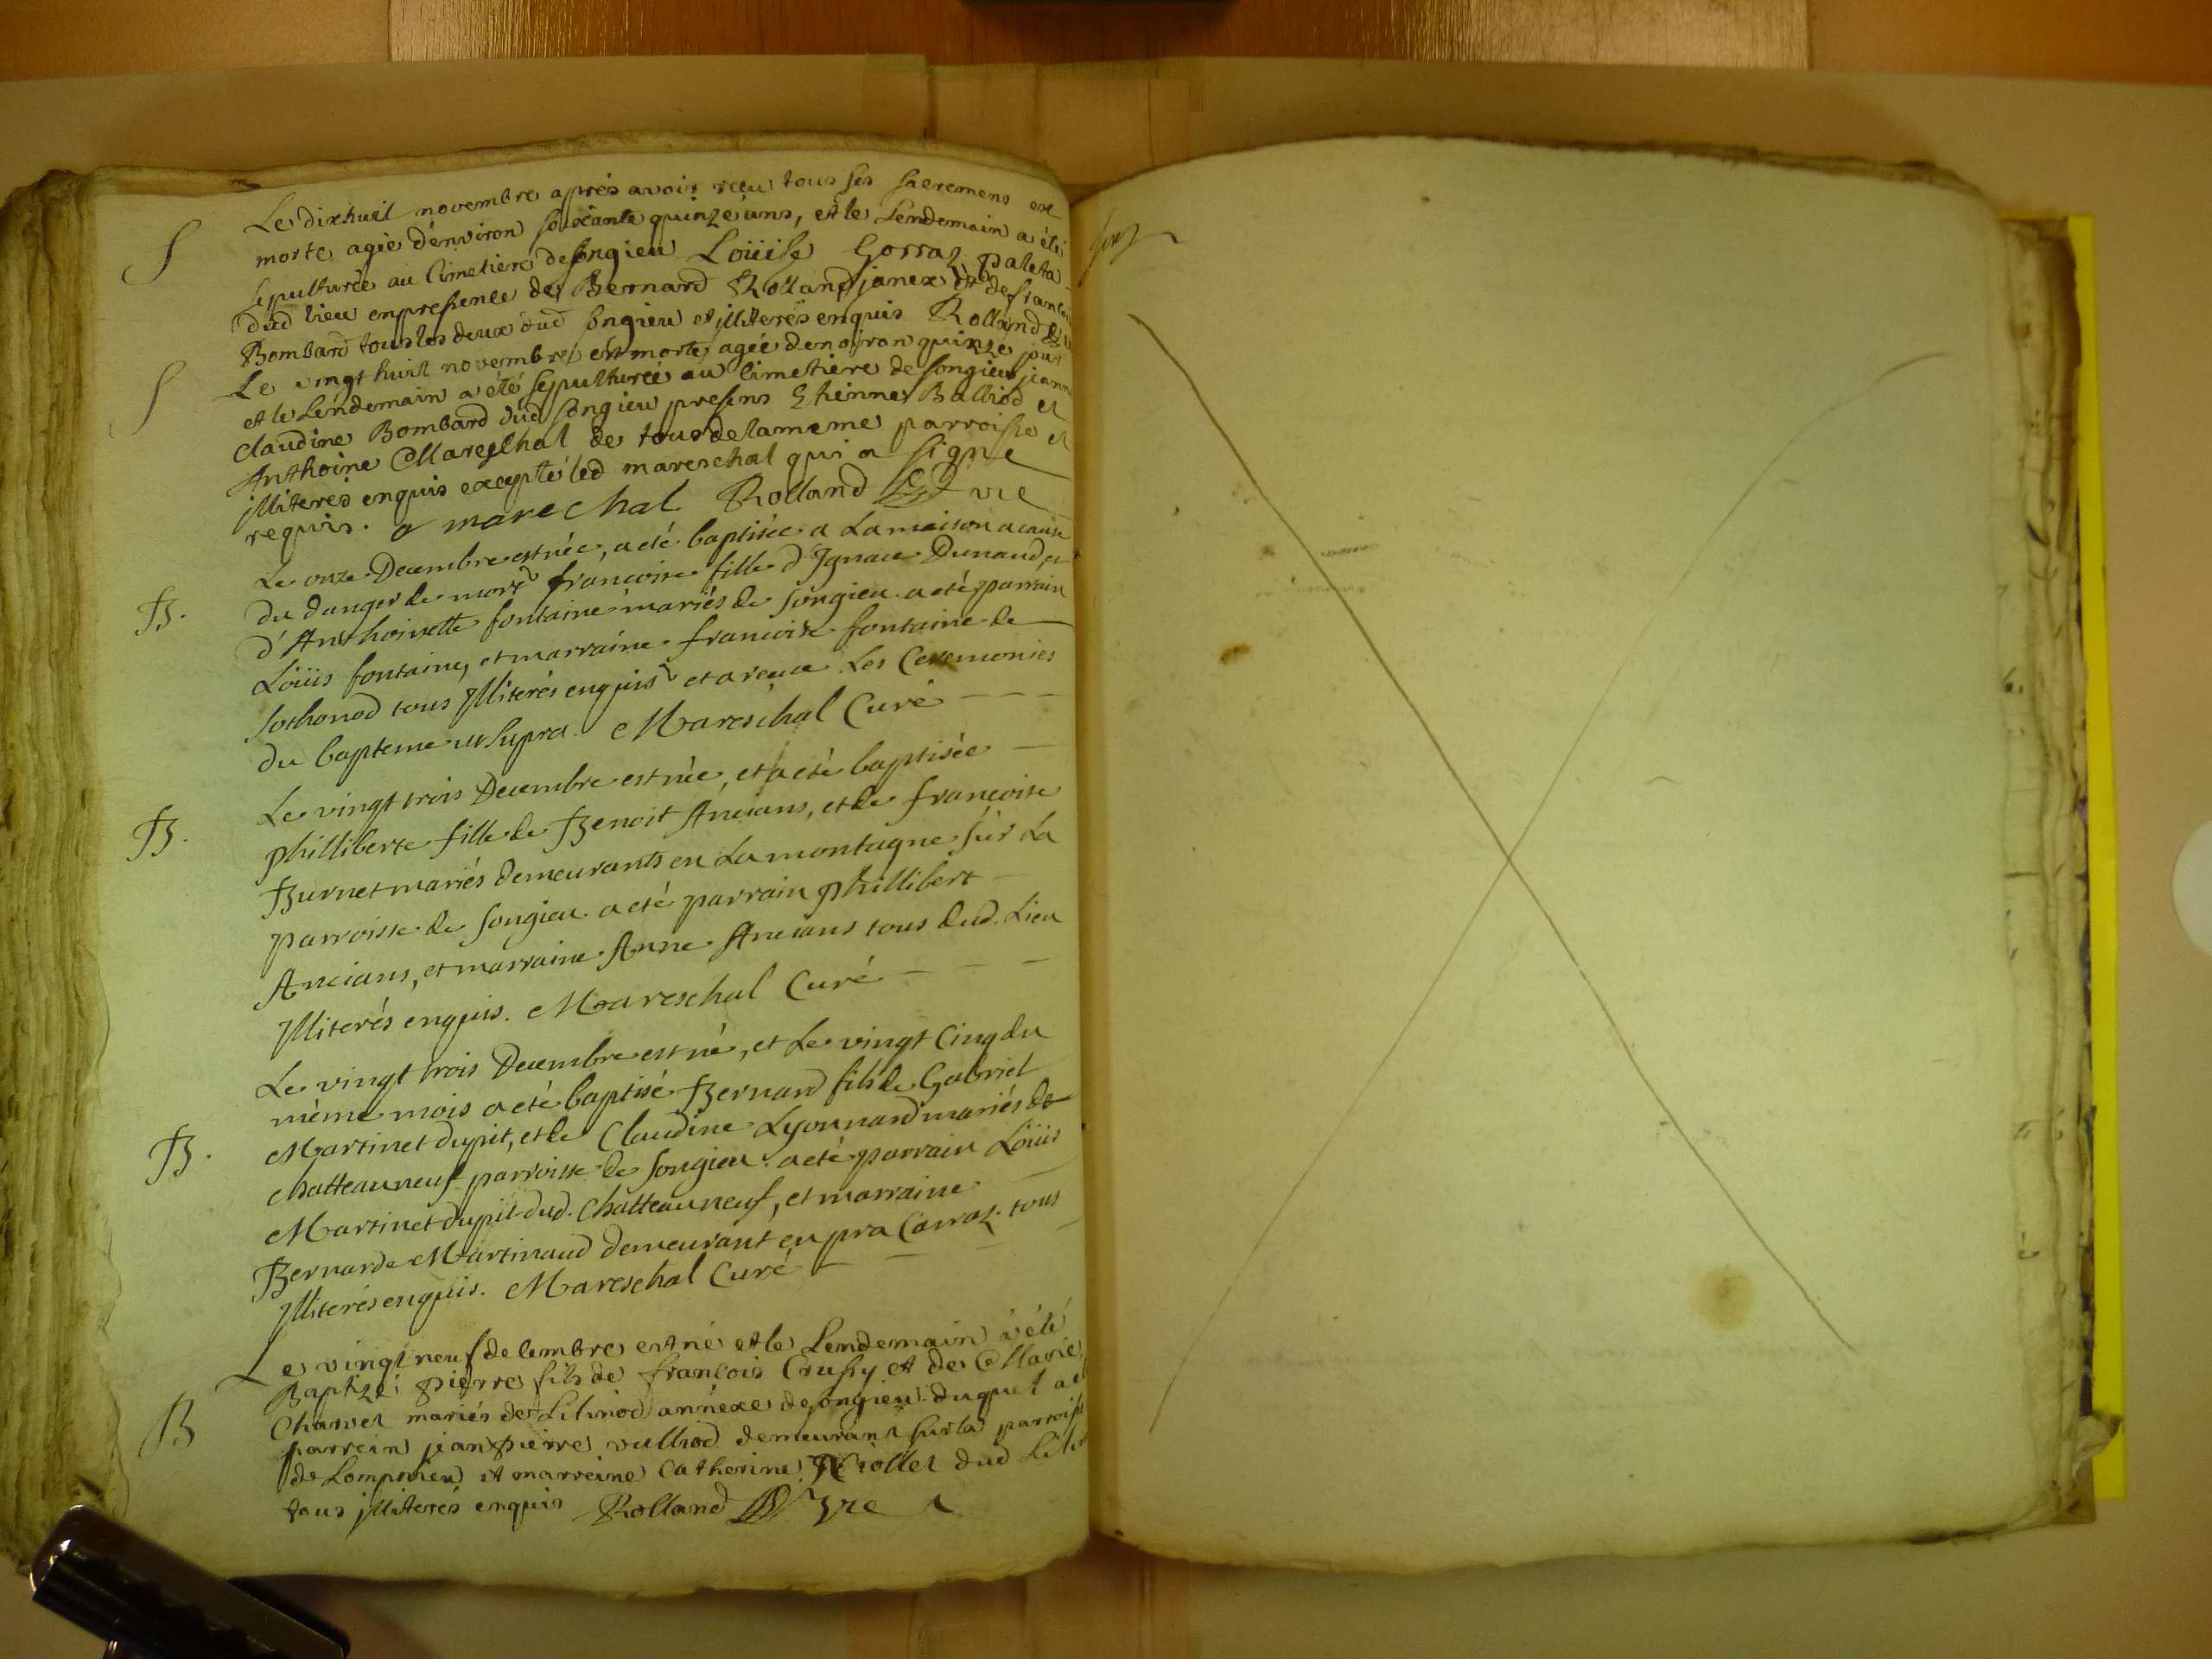 S
Le dixhuit novembre aprés avoir reçu tous ses sacremens est
morte agée d'environ soixante quinze ans, et le Lendemain a été
sepulturée au Cimetiere de songieu Loüise Gorraz paleta
dud lieu en presence de Bernard Rolland janex et de francois
Bombard tous les deux dud songieu et illiterés enquis Rolland
S
Le vingt huit novembre est morte agée denviron quinze
et le Lendemain a été sepulturée au Cimetiere de songieu jeanne
Claudine Bombard dud songieu presens Ethienne Balliod et
Anthoine Mareschal de tous de la meme parroisse et
illiterés enquis excepté led mareschal qui a signé
requis. a marechal Rolland vre
B.
Le onze Decembre est née, a eté baptisée a La maison a cause
du danger de mort francoise fille d'Ignace Dunaud, et
d'Anthoinette fontaine mariés de songieu. a eté parrain
Loüis fontaine, et marraine francoise fontaine de
sothonod tous Illiterés enquis et a reçue Les Ceremonies
du bapteme ut supra. Mareschal Curé
B.
Le vingt trois Decembre est née, et a eté baptisée
philliberte fille de Benoit Ancians, et de francoise
Burnet mariés demeurants en La montagne sur La
parroisse de songieu. a eté parrain phillibert
Ancians, et marraine Anne Ancians tous dud. Lieu
Illiterés enquis. Mareschal Curé
B.
Le vingt trois Decembre est né, et Le vingt Cinq du
même mois a eté baptisé Bernard fils de Gabriel
Martinet dupit, et de Claudine Lyonnard mariés de
chatteauneuf parroisse de songieu. a eté parrain Loüis
Martinet dupit dud. Chatteauneuf, et marraine
Bernarde Martinaud demeurant en pra Corraz. tous
Illiterés enquis. Mareschal Curé
B
Le vingt neuf decembre est né et le Lendemain a été
Baptizé pierre fils de francois Crussy et de Marie
Charvet mariés de Lilinod annexe de songieu. duquel a
parrein jean pierre vulliod demeurant sur la parroisse
de Lompnieu et marreine Catherine dud
tous illiterés enquis Rolland vre